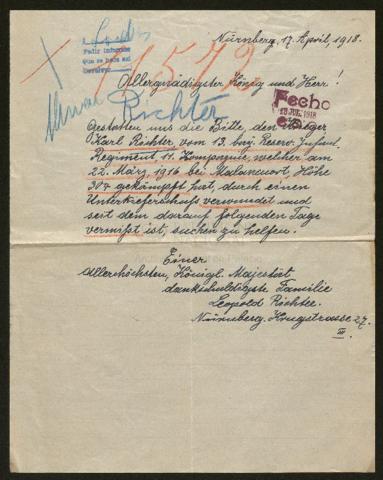 Nürnberg, 17. April, 1918.
Pedir informe
Que se hace así
71572
Allergnädigster König und Herr!
Richter
Fecho
18 JUL. 1918
Gestatten uns die Bitte, den Krieger
Karl Richter vom 13. bay. Reserv. Infant.
Regiment, 11. Kompagnie, welcher am
22. März, 1916 bei Malancourt, Höhe
304 gekämpft hat, durch einen
Unterkieferschuß verwundet und
seit dem darauf folgenden Tage
vermißt ist, suchen zu helfen.
Einer
Allerhöchsten, Königl. Majestät
dankschuldigste Familie
Leopold Richter.
Nürnberg. Krugstrasse 27.
III.